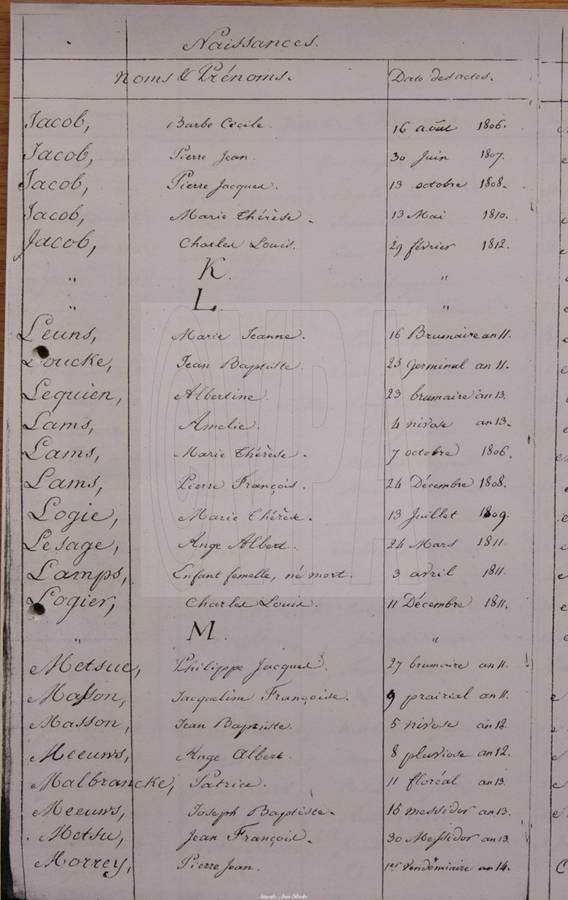 Naissances.
Noms & Prénoms. Date des actes.
Jacob, Barbe Cécile. 16 août 1806.
Jacob, Pierre Jean. 30 Juin 1807.
Jacob, Pierre Jacques. 13 octobre 1808.
Jacob, Marie Thérèse. 13 Mai 1810.
Jacob, Charles Louis. 29 février 1812.
" K. "
" L. "
Leuns, Marie Jeanne. 16 Brumaire an 11.
Loucke, Jean Baptiste. 25 germinal an 11.
Lequien, Albertine 23 brumaire an 13.
Lams, Amelie. 4 nivose an 13.
Lams, Marie Thérèse. 7 octobre 1806.
Lams, Pierre François. 24 Décembre 1808.
Logie, Marie Thérèse. 13 Juillet 1809.
Lesage, Ange Albert. 24 Mars 1811.
Lamps, Enfant femelle, né mort. 3 avril 1811.
Logier, Charles Louis. 11 Décembre 1811.
" M. "
Metsue, Philippe Jacques. 27 brumaire an 11.
Masson, Jacqueline Françoise. 9 prairial an 11.
Masson, Jean Baptiste. 5 nivose an 12.
Meeuws, Ange Albert. 8 pluviose an 12.
Malbrancke, Patrice. 11 floréal an 13.
Meeuws, Joseph Baptiste. 16 messidor an 13.
Metsu, Jean François. 30 Messidor an 13.
Morrey, Pierre Jean. 1er Vendémiaire an 14.